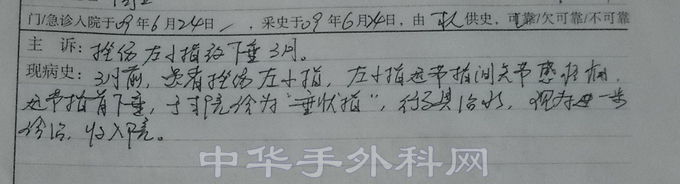 门/急诊入院于09年6月24日 , 采史于09年6月24日, 由本人供史, 可靠/欠可靠/不可靠
主 诉: 挫伤左小指致下垂3月。
现病史: 3月前, 患者挫伤左小指, 左小指远节指间关节感疼痛,
远节指背下垂, 于 院诊为“垂状指”, 行 具治疗, 现为进一步
诊治, 收入院。
中华手外科网